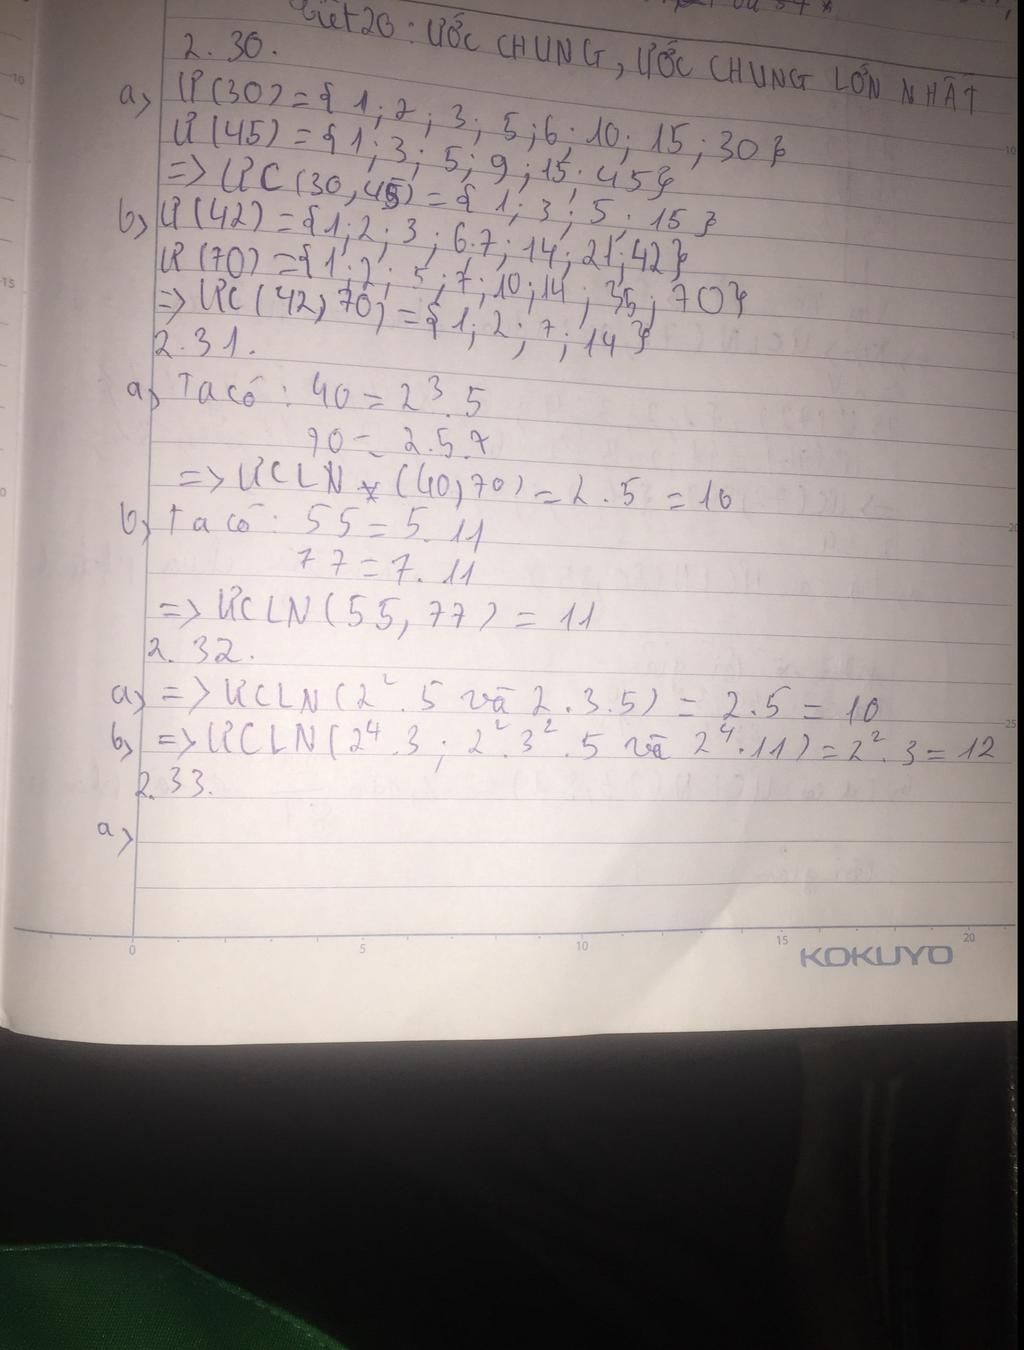 Tiết 20: ƯỚC CHUNG, ƯỚC CHUNG LỚN NHẤT
2.30.
a) Ư(30) = { 1; 2; 3; 5; 6; 10; 15; 30 }
Ư(45) = { 1; 3; 5; 9; 15; 45 }
=> ƯC(30, 45) = { 1; 3; 5; 15 }
b) Ư(42) = { 1; 2; 3; 6. 7; 14; 21; 42 }
Ư(70) = { 1; 2; 5; 7; 10; 14; 35; 70 }
=> ƯC(42, 70) = { 1; 2; 7; 14 }
2.31.
a) Ta có: 40 = 2³.5
70 = 2.5.7
=> ƯCLN (40, 70) = 2.5 = 10
b) Ta có: 55 = 5.11
77 = 7.11
=> ƯCLN(55, 77) = 11
2.32.
a) => ƯCLN(2².5 và 2.3.5) = 2.5 = 10
b) => ƯCLN(2⁴.3; 2².3².5 và 2⁴.11) = 2².3 = 12
2.33.
a)
0 5 10 15 20
KOKUYO